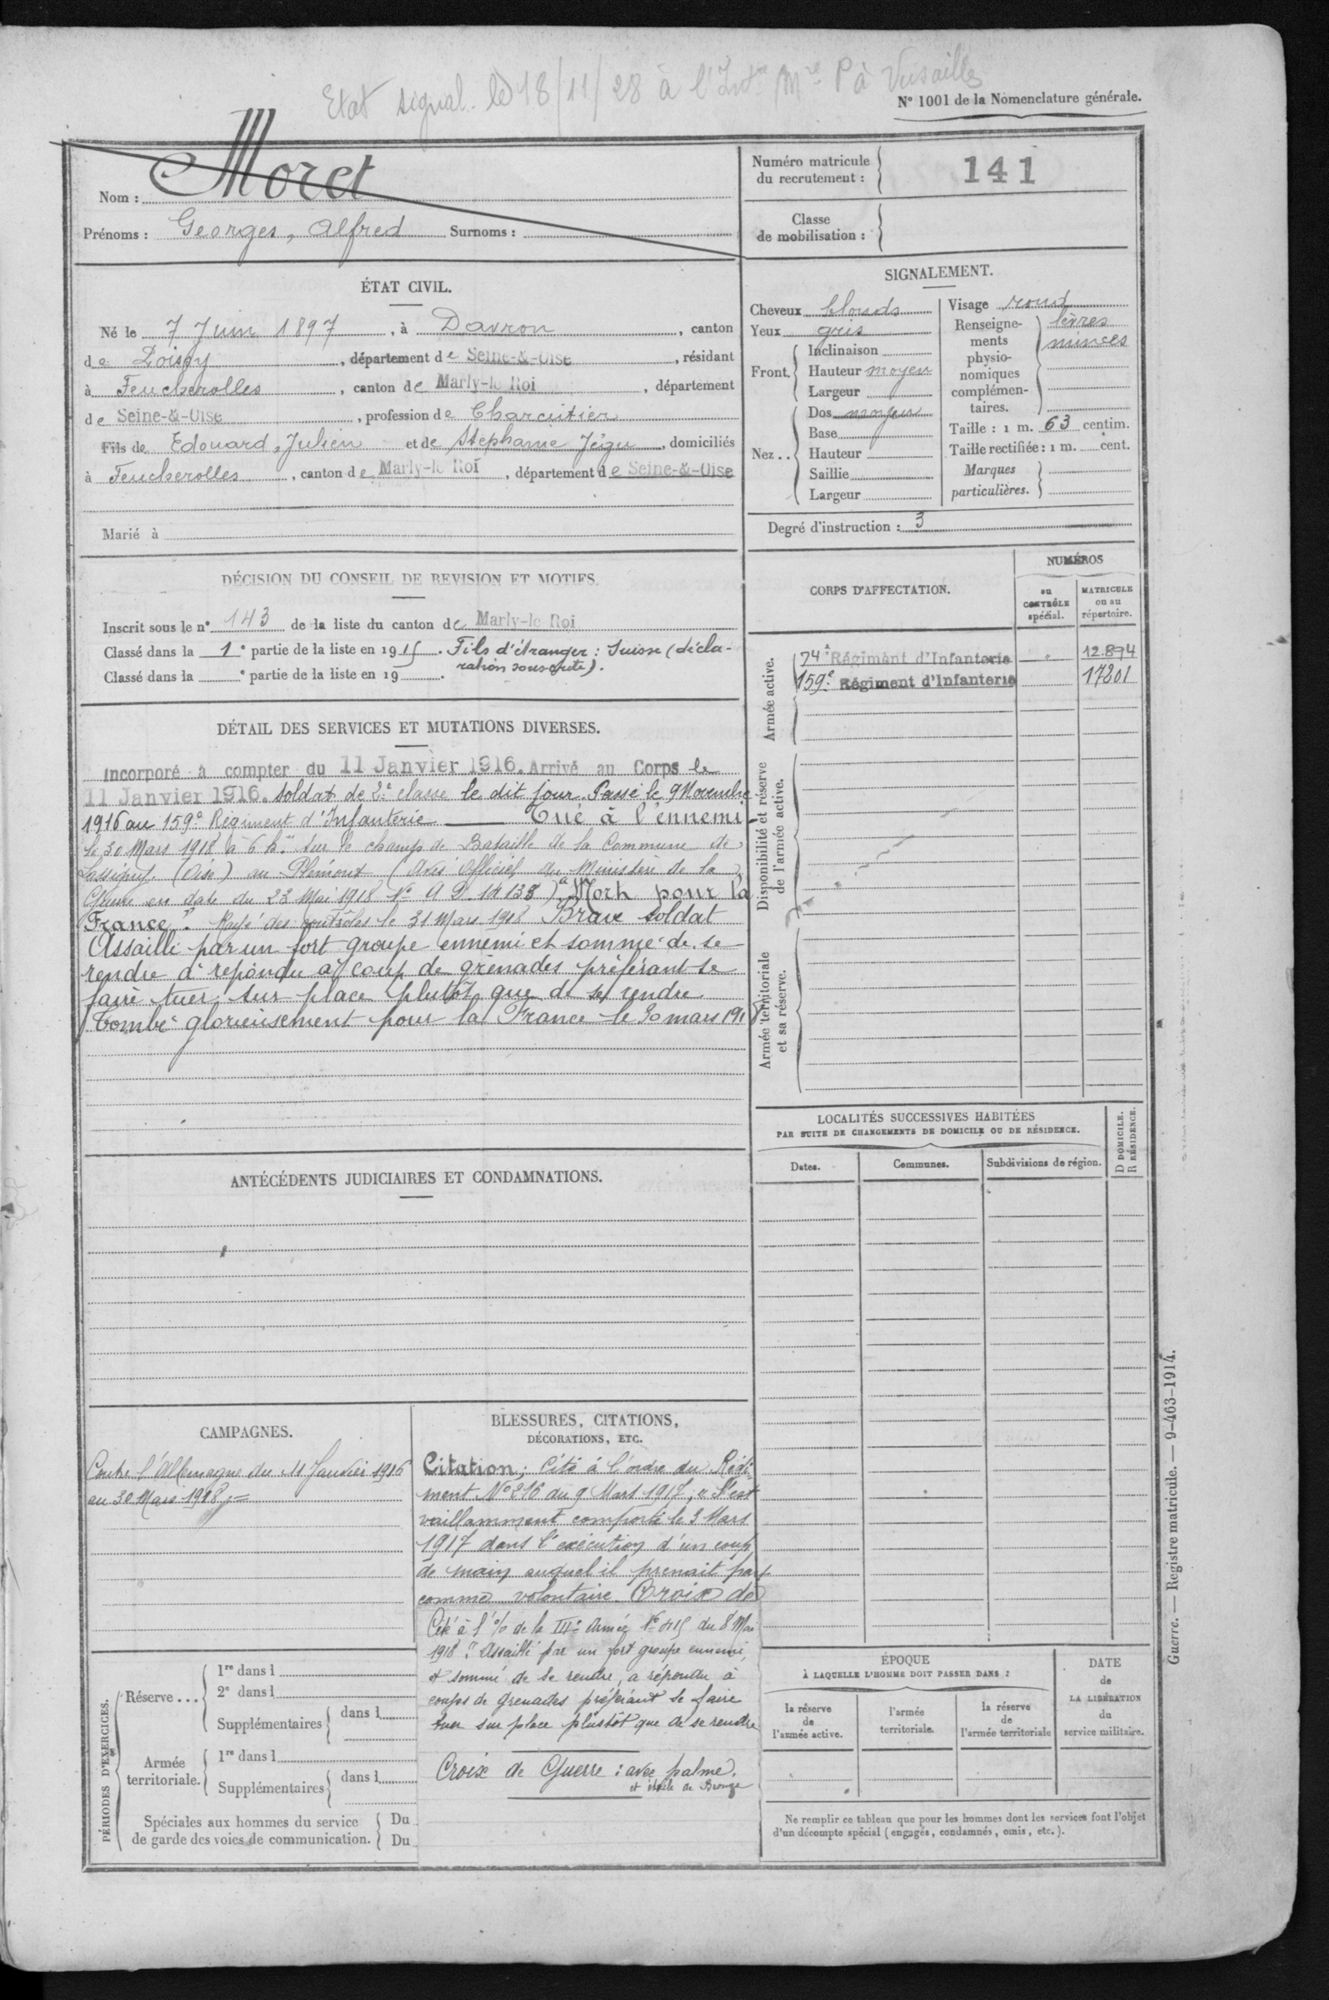 Etat signal. le 18/11/28 à l'Int Mre P à Versailles
N° 1001 de la Nomenclature générale.
Nom : Moret
Prénoms : Georges, Alfred Surnoms :
Numéro matricule du recrutement : 141
Classe de mobilisation :
ÉTAT CIVIL.
Né le 7 Juin 1897, à Davron, canton
de Poissy, département de Seine-&-Oise, résidant
à Feucherolles, canton de Marly-le Roi, département
de Seine-&-Oise, profession de Charcutier
Fils de Edouard, Julien et de Stephanie Jégu, domiciliés
à Feucherolles, canton de Marly-le Roi, département de Seine-&-Oise
Marié à
SIGNALEMENT.
Cheveux blonds
Yeux gris
Front. Inclinaison
Hauteur moyen
Largeur
Nez .. Dos moyen
Base
Hauteur
Saillie
Largeur
Visage rond
Renseignements physionomiques complémentaires. lèvres
minces
Taille : 1 m. 63 centim.
Taille rectifiée : 1 m. cent.
Marques particulières.
Degré d'instruction : 3
DÉCISION DU CONSEIL DE REVISION ET MOTIFS.
Inscrit sous le n° 143 de la liste du canton de Marly-le Roi
Classé dans la 1e partie de la liste en 1915. Fils d'étranger : Suisse (décla-
ration souscrite).
Classé dans la e partie de la liste en 19 .
CORPS D'AFFECTATION.
NUMÉROS
au CONTRÔLE spécial.
MATRICULE ou au répertoire.
Armée active.
74e Régiment d'Infanterie 12.874
159e Régiment d'Infanterie 17201
Disponibilité et réserve de l'armée active.
Armée territoriale et sa réserve.
DÉTAIL DES SERVICES ET MUTATIONS DIVERSES.
Incorporé à compter du 11 Janvier 1916. Arrivé au Corps le
11 Janvier 1916. soldat de 2e classe le dit jour. Passé le 9 Novembre
1916 au 159e Régiment d'Infanterie — Tué à l'ennemi
le 30 Mars 1918 à 6 h. sur le champ de Bataille de la Commune de
Lassigny (Oise) au Plémont (Avis Officiel du Ministère de la
Guerre en date du 23 Mai 1918 N° A D. 14133) "Mort pour la
France". Rayé des contrôles le 31 Mars 1918 Brave soldat
Assailli par un fort groupe ennemi et sommé de se
rendre à repondu a coup de grenades préférant se
faire tuer sur place plutôt que de se rendre
Tombé glorieusement pour la France le 30 mars 1918
ANTÉCÉDENTS JUDICIAIRES ET CONDAMNATIONS.
LOCALITÉS SUCCESSIVES HABITÉES
PAR SUITE DE CHANGEMENTS DE DOMICILE OU DE RÉSIDENCE.
Dates. Communes. Subdivisions de région. D DOMICILE. R RÉSIDENCE.
CAMPAGNES.
Contre l'Allemagne du 11 Janvier 1916
au 30 Mars 1918
BLESSURES, CITATIONS,
DÉCORATIONS, ETC.
Citation; Cité à l'ordre du Régi-
ment N° 216 du 9 Mars 1917, « S'est
vaillamment comporté le 3 Mars
1917 dans l'exécution d'un coup
de main auquel il prenait part
comme volontaire. Croix de
Cité à l'% de la IIIe Armée N° 415 du 8 Mai
1918 "Assailli par un fort groupe ennemi,
et sommé de se rendre, a répondu à
coups de grenades préférant se faire
tuer sur place plustôt que de se rendre
Croix de Guerre : avec palme.
et étoile de Bronze
PÉRIODES D'EXERCICES.
Réserve ... 1re dans l
2e dans l
Supplémentaires dans l
Armée territoriale. 1re dans l
Supplémentaires dans l
Spéciales aux hommes du service Du
de garde des voies de communication. Du
ÉPOQUE
À LAQUELLE L'HOMME DOIT PASSER DANS :
la réserve de l'armée active.
l'armée territoriale.
la réserve de l'armée territoriale
DATE de LA LIBÉRATION du service militaire.
Ne remplir ce tableau que pour les hommes dont les services font l'objet
d'un décompte spécial (engagés, condamnés, omis, etc.).
Guerre. — Registre matricule. — 9-463-1914.